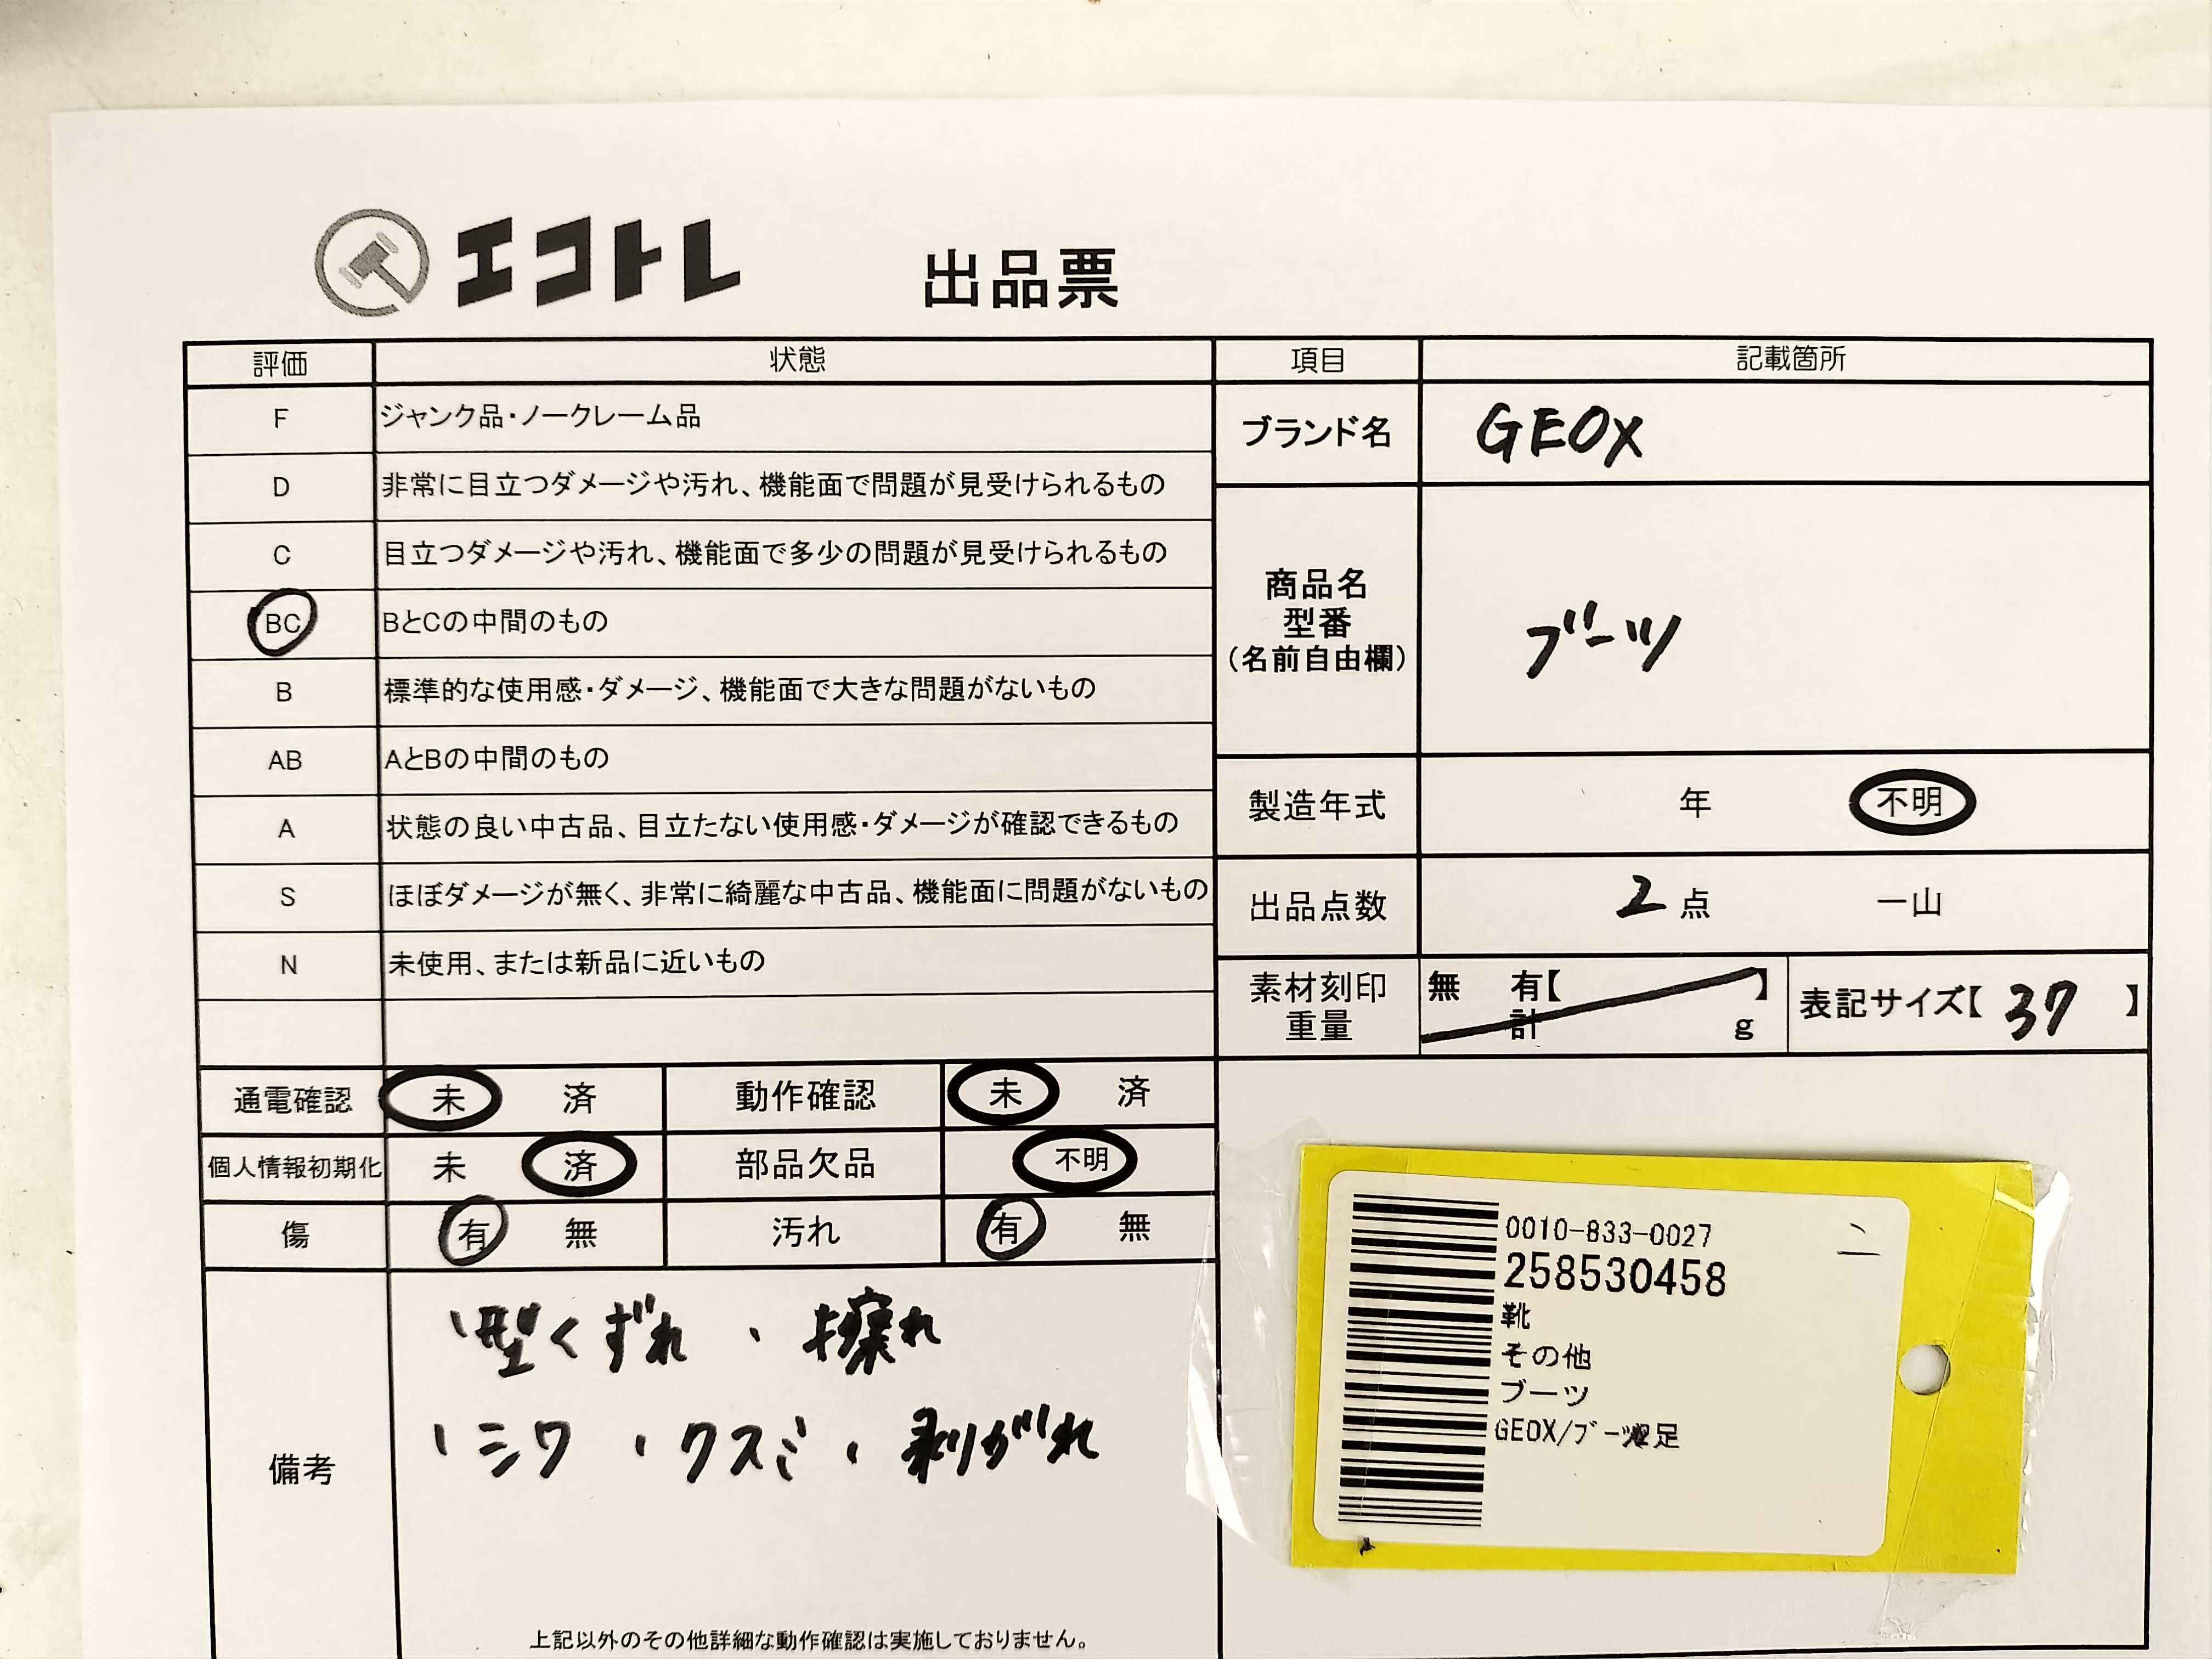 エコトレ 出品票
評価 状態 項目 記載箇所
F ジャンク品・ノークレーム品
D 非常に目立つダメージや汚れ、機能面で問題が見受けられるもの
C 目立つダメージや汚れ、機能面で多少の問題が見受けられるもの
BC BとCの中間のもの
B 標準的な使用感・ダメージ、機能面で大きな問題がないもの
AB AとBの中間のもの
A 状態の良い中古品、目立たない使用感・ダメージが確認できるもの
S ほぼダメージが無く、非常に綺麗な中古品、機能面に問題がないもの
N 未使用、または新品に近いもの
ブランド名 GEOX
商品名
型番
(名前自由欄)
ブーツ
製造年式 年 不明
出品点数 2点 一山
素材刻印 無 有【 】
重量 計 g
表記サイズ【37】
通電確認 未 済 動作確認 未 済
個人情報初期化 未 済 部品欠品 不明
傷 有 無 汚れ 有 無
備考
、型くずれ 、擦れ
、シワ 、クスミ、剥がれ
上記以外のその他詳細な動作確認は実施しておりません。
0010-833-0027
258530458
靴
その他
ブーツ
GEOX/ブーツ 足